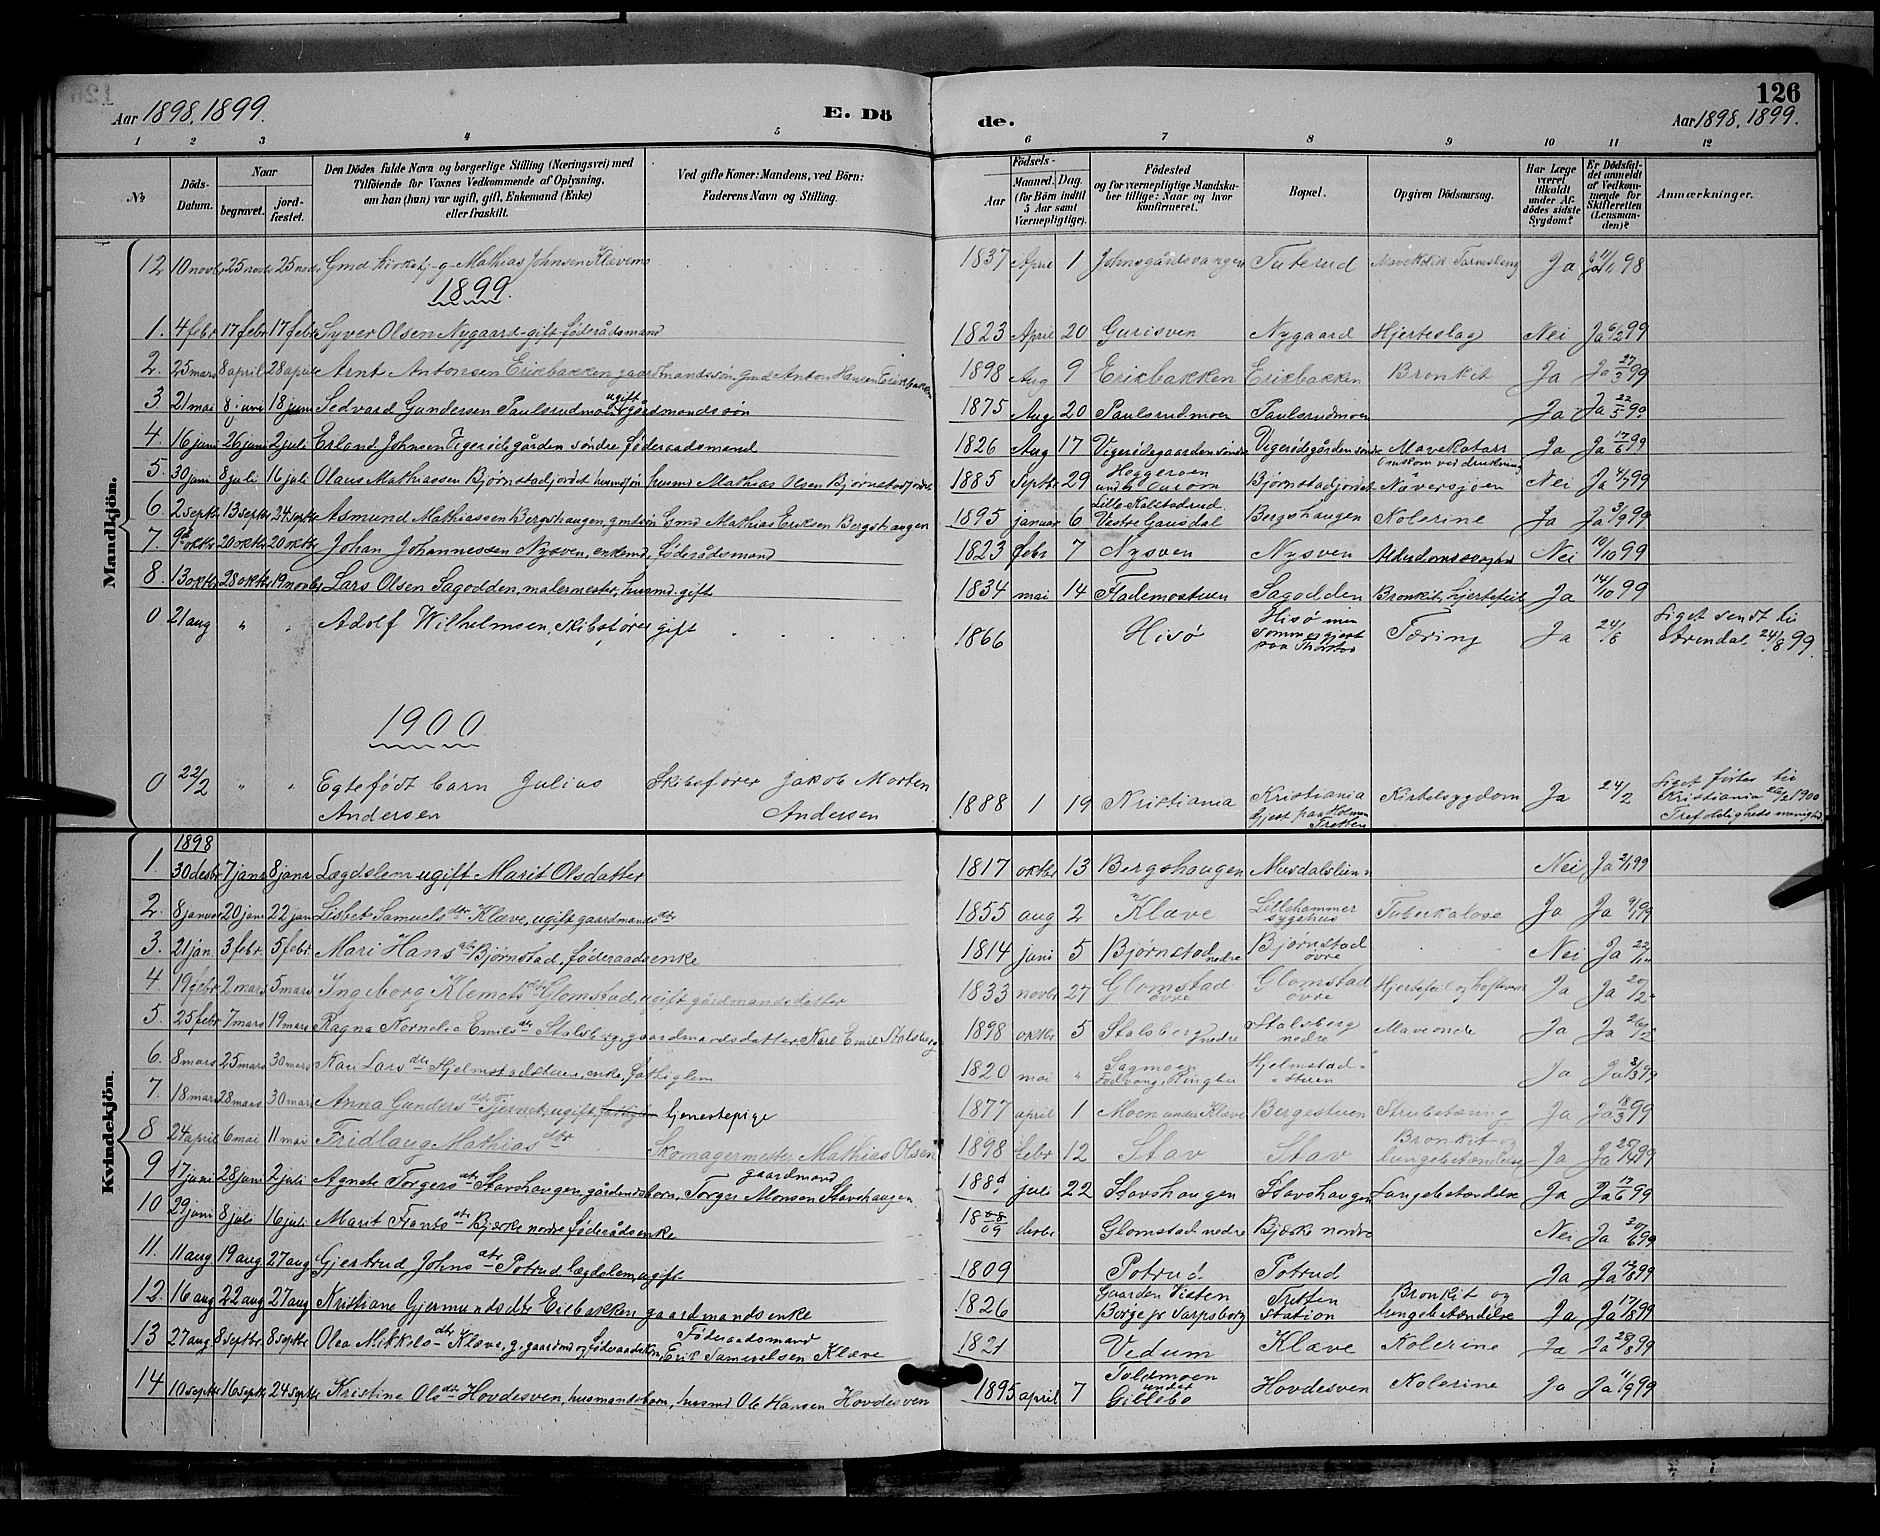 126
Aar 1898, 1899.
E. Dö de.
Aar 1898, 1899.
1 2 3 4 5 6 7 8 9 10 11 12
No
Döds-Datum.
Naar
begravet.
jord-fæstet.
Den Dödes fulde Navn og borgerlige Stilling (Næringsvei) med
Tilföiende for Voxnes Vedkommende af Oplysning,
om han (hun) var ugift, gift, Enkemand (Enke)
eller fraskilt.
Ved gifte Koner: Mandens, ved Börn:
Faderens Navn og Stilling.
Födsels-
Aar
Maaned. Dag.
(for Börn indtil
5 Aar samt
Værnepligtige).
Födested
og for værnepligtige Mandska-
ber tillige: Naar og hvor
konfirmeret.
Bopæl.
Opgiven Dödsaarsag.
Har Læge
været
tilkaldt
under Af-
dödes sidste
Sygdom?
Er Dödsfal-
det anmeldt
af Vedkom-
mende for
Skifteretten
(Lensman-
den)?
Anmærkninger.
Mandkjön.
12 10 novbr 25 novbr 25 novbr Gmd Kirketj. g. Mathias Johnsen Klævemo 1837 April 1 Johnsgårdsvangen Tuterud Ja Ja 11/11 98
1899.
1. 4 febr 17 febr 17 febr Syver Olsen Nygaard gift føderådsmand 1823 April 20 Gurisven Nygaard Hjerteslag Nei Ja 6/2 99
2. 25 mars 8 april 28 april Arnt Antonsen Erikbakken gaardmandssøn Gmd Anton Hansen Erikbakken 1898 Aug 9 Erikbakken Erikbakken Bronkit Ja Ja 27/3 99
3 21 mai 8 juni 18 juni Sedvard Gundersen Paulsrudmoen ugift gårdmandssøn 1875 Aug 20 Paulsrudmoen Paulsrudmoen Ja Ja 22/5 99
4. 16 juni 26 juni 2 juli Erland Johnsen Vigerødegården søndre føderaadsmand 1826 Aug 17 Vigerødegaarden søndre Vigerødegården søndre Mavekatarr Ja Ja 17/6 99
5. 30 juni 8 juli 16 juli Olaus Mathiassen Bjørnstadjordet husmdsøn husmd Mathias Olsen Bjørnstadjordet 1885 Septbr 29 Heggeroen under Aurom Bjørnstadjordet Omkom ved drukning i Næversjøen Nei Ja 4/7 99
6 2 septbr 13 septbr 24 septbr Asmund Mathiassen Bergshaugen, gmdsøn Gmd Mathias Eriksen Bergshaugen 1895 januar 6 Lille Kalstadrud Vestre Gausdal Bergshaugen Kolerine Ja Ja 3/9 99
7. 9de oktbr 20 oktbr 20 oktbr Johan Johannessen Nysven, enkemd, føderådsmand 1823 febr 7 Nysven Nysven Alderdomssvaghed Nei 10/10 99
8. 13 oktbr 28 oktbr 19 novbr Lars Olsen Sagodden, malermester, husmd. gift 1834 mai 14 Flademostuen Sagodden Bronkit, hjertefeil Ja 14/10 99
0 21 aug " " Adolf Wilhelmsen, skibsfører gift 1866 Hisø Hisø men sommergjest paa Thorstad Tæring Ja 24/8 Liget sendt til Arendal 24/8 99.
1900
0 22/2 " " Egtefødt barn Julius Andersen Skibsfører Jakob Morten Andersen 1888 1 19 Kristiania Kristiania Gjest paa Holmen Tretten Kirtelsygdom Ja 24/2 Liget førtes til Kristiania 26/2 1900 Trefoldigheds menighed.
Kvindekjön.
1898
1. 30 desbr 7 janr 8 janr Lægdslem ugift Marit Olsdatter 1817 oktbr 13 Bergshaugen Musdalslien Nei Ja 2/1 99
2. 8 januar 20 jan 22 jan Lisbet Samuelsdtr Klæve, ugift gaardmandsdtr 1855 aug 2 Klæve Lillehammer sygehus Tuberkulose Ja Ja 9/1 99
3. 21 jan. 3 febr. 5 febr Mari Hansdtr Bjørnstad, føderaadsenke 1814 juni 5 Bjørnstad nedre Bjørnstad øvre Nei Ja 22/1
4 19 febr 2 mars 5 mars Ingeborg Klemetsdtr Glomstad, ugift gårdmandsdatter 1833 novbr 27 Glomstad øvre Glomstad øvre Ja Ja 20/2
5. 25 febr 7 mars 19 mars Ragna Kornelie Emilsdtr Stalsberg gaardmandsdatter, Karl Emil Stalsberg 1898 oktbr 5 Stalsberg nedre Stalsberg nedre Maveonde Ja Ja 26/2
6. 8 mars 25 mars 30 mars Kari Larsdtr Hjelmstadstuen, enke, fattiglem 1820 mai " Sagmoen Ringbu Hjelmstadstuen Ja Ja 3/3 99
7. 18 mars 28 mars 30 mars Anna Gundersdtr Tjernet, ugift, tjenestepige 1877 april 1 Moen under Klæve Bergestuen Strubetæring Ja Ja 18/3 99
8 24 april 6 mai 11 mai Fridlaug Mathiasdtr Skomagermester Mathias Olsen 1898 febr 12 Stav Stav Bronkit og lungebetændelse Ja Ja 25/4 99
9 17 juni 28 juni 2 juli Agnete Torgersdtr Stavshaugen, gårdmdsbarn, gaardmand Torger Monsen Stavshaugen juli 22 Stavshaugen Stavshaugen Lungebetændelse Ja Ja 17/6 99
10 29 juni 8 juli 16 juli Marit Frantsdtr Bjerke nordre føderådsenke 1809 desbr Glomstad nedre Bjerke nordre Nei Ja 30/6 99
11. 11 aug 19 aug 27 aug Gjertrud Johnsdtr Potrud lægdslem, ugift 1809 Potrud Potrud Ja Ja 12/8 99
12. 16 aug 22 aug 27 aug Kristiane Gjermundsdtr Eilbakken gaardmandsenke 1826 Gaarden Vieten Borge pr Sarpsborg Tretten station Bronkit og lungebetændelse Ja Ja 17/8 99
13 27 aug 8 septbr 8 septbr Olea Mikkelsdtr Klæve, g. gaardmd og føderaadskone, Føderaadsmand Erik Samuelsen Klæve 1821 Vedum Klæve Kolerine Ja Ja 29/8 99
14 10 septbr 16 septbr 24 septbr Kristine Olsdtr Hovdesven, husmandsbarn, husmd Ole Hansen Hovdesven 1895 april 7 Toldmoen under Gillebo Hovdesven Kolerine Ja Ja 11/9 99